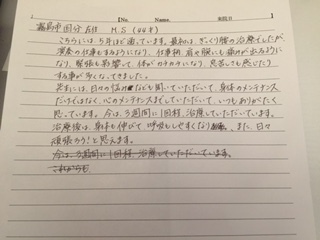 【No.                Name.                来院日          】
霧島市国分在住　M.S (44才)
こちらには5年ほど通っています。最初は、ぎっくり腰の治療でしたが、
演奏の仕事もするようになり、仕事柄、肩や腕にも痛みが出るように
なり、緊張も影響して、体がガチガチになり、息苦しさも感じたり
する事が多くなってきました。
先生には、日々の悩みなども聞いていただいて、身体のメンテナンス
だけではなく、心のメンテナンスまでしていただいて、いつもありがたく
思っています。今は、3週間に1回程、治療していただいています。
治療後は、身体も伸びて呼吸もしやすくなり、また、日々
頑張ろう!と思えます。
今は、3週間に1回程、治療していただいています。
これからも